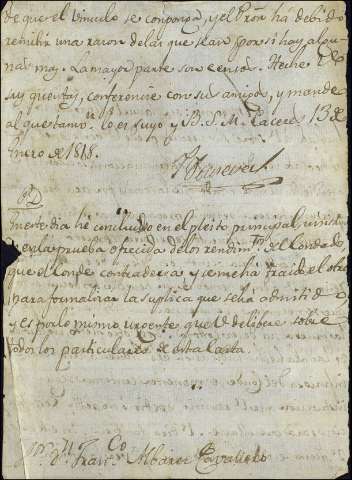 de que el vinculo se componga, y el Pror ha debido
recibir una razon de las que sean, y por si hay algu-
nas mas. La mayor parte son censos. Heche Vd
sus quentas, conferencie con sus amigos, y mande
al que tamn. lo es suyo y B.S.M. Caceres 13 de
Enero de 1818.
PD
En este dia hé concluido en el pleito principal, insisti
en la prueba ofrecida de los rendimtos. del Condado
que el Conde contradecia y se me há traido el otro
para formalizar la suplica que se há admitido
y es por lo mismo urgente que Vd delibere sobre
todos los particulares de esta Carta.
Sr. Dn. Franco. Albarez Cavallero